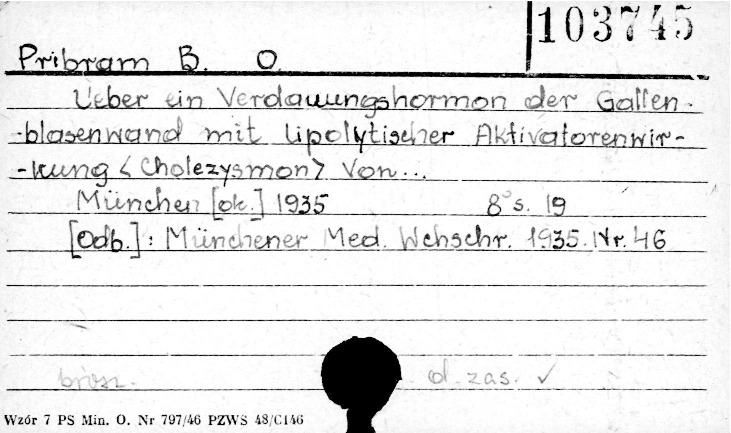 103745
Pribram B. O.
Ueber ein Verdauungshormon der Gallen-
-blasenwand mit lipolytischer Aktivatorenwir-
-kung <Cholezysmon> Von...
München [ok.] 1935 8° s. 19
[Odb.]: Münchener Med. Wchschr. 1935. Nr. 46
brosz. d. zas. ✓
Wzór 7 PS Min. O. Nr 797/46 PZWS 48/C146